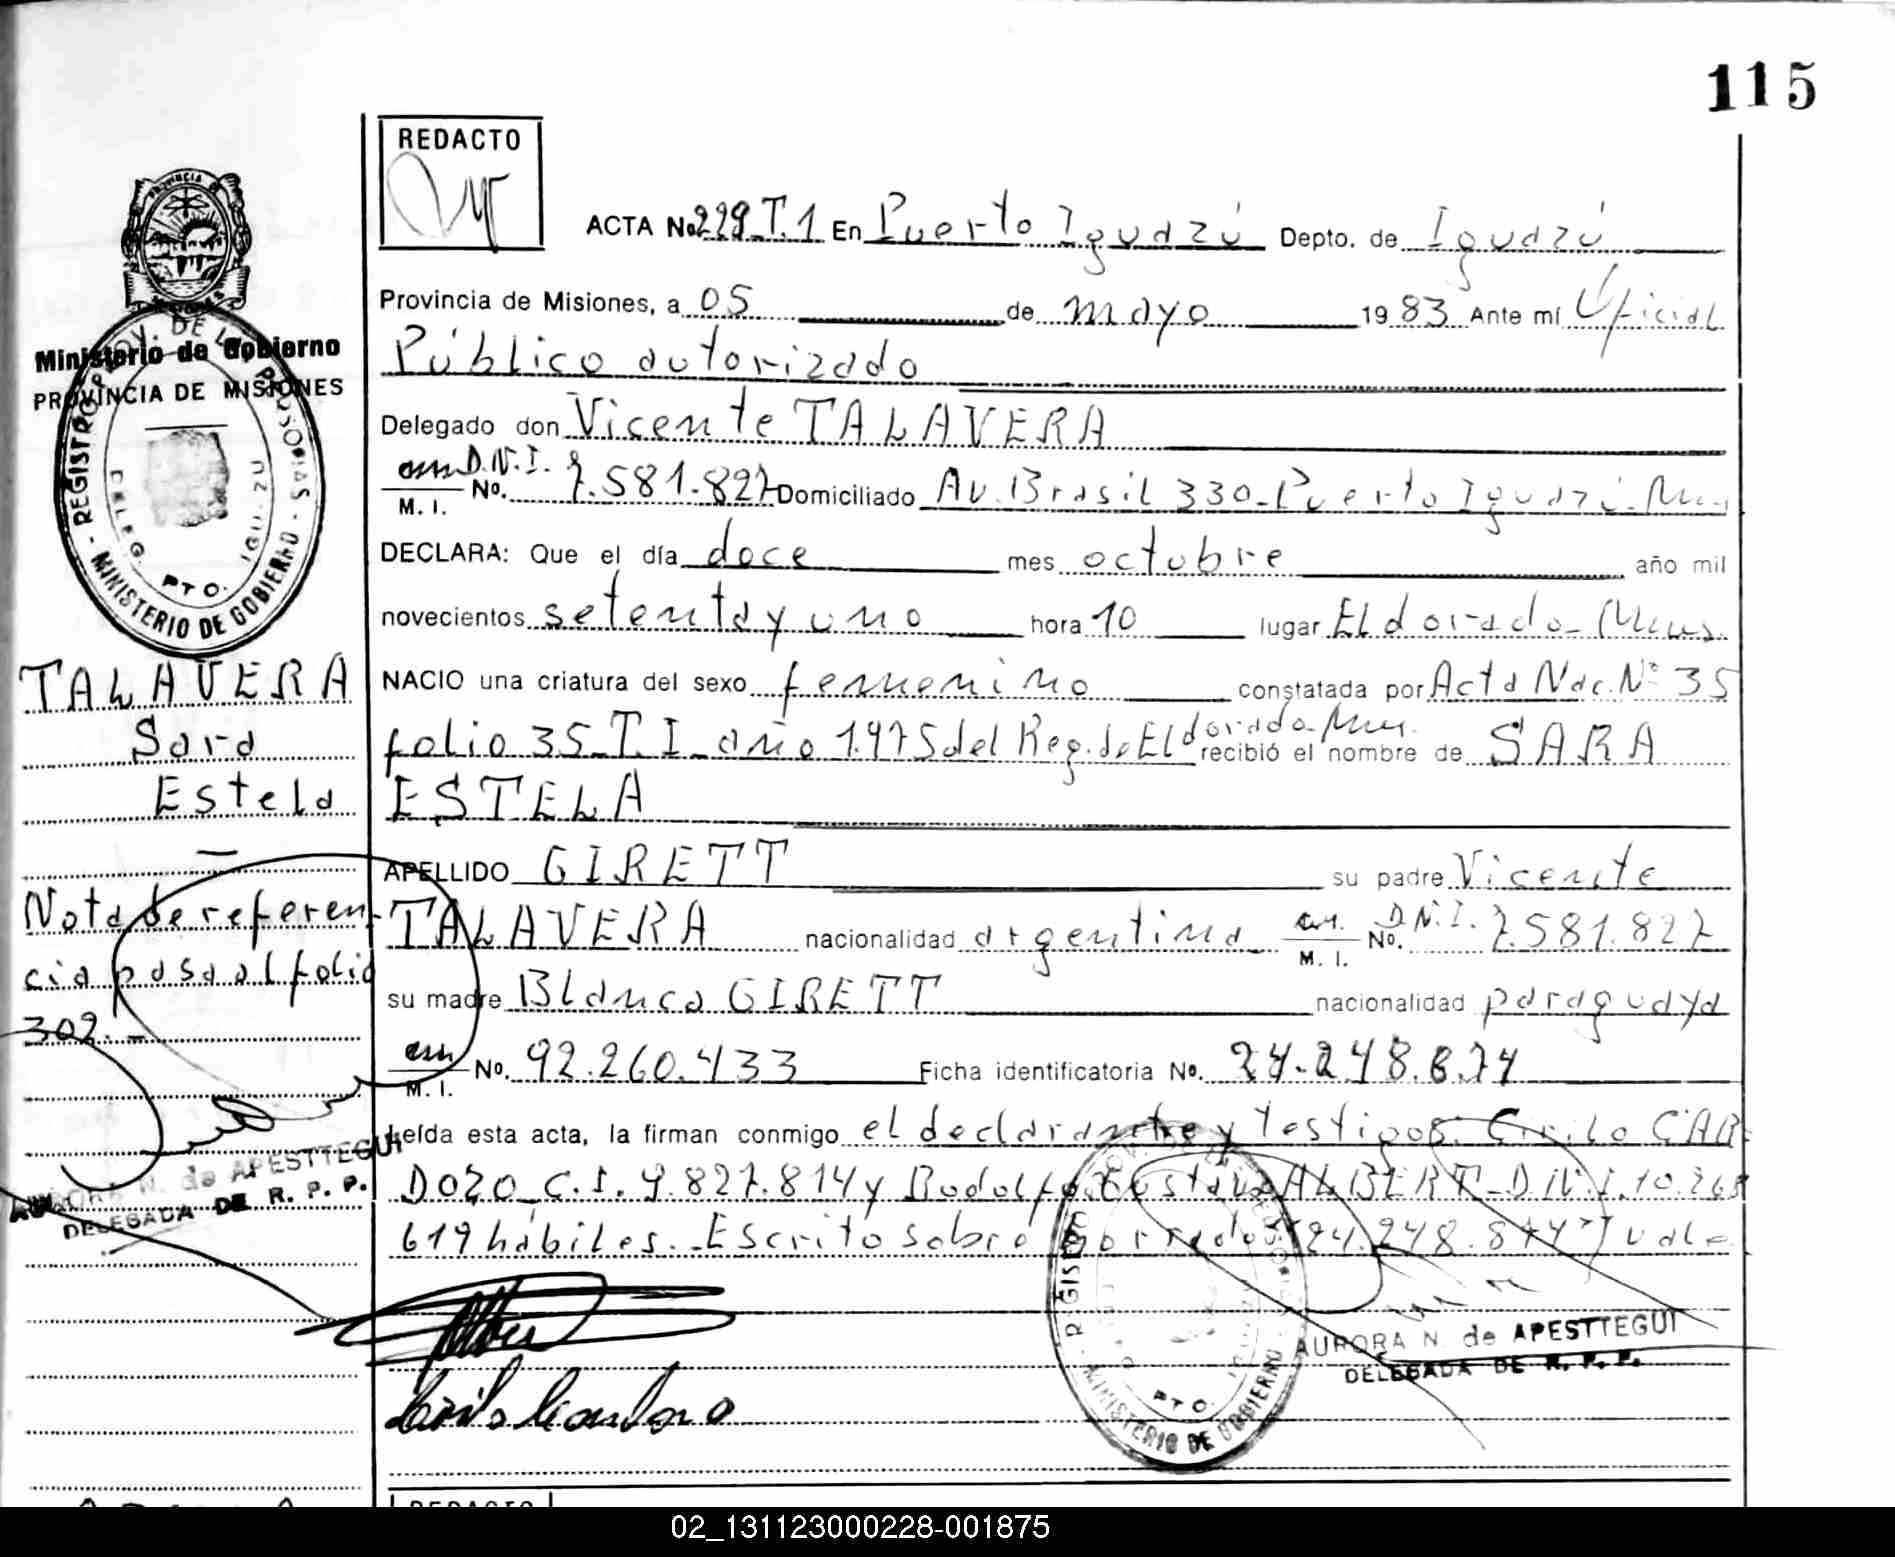 115
REDACTO
ACTA No. 229 T. 1 En Puerto Iguazú Depto. de Iguazú
Provincia de Misiones, a 05 de mayo 19 83 Ante mí Oficial
Público autorizado
Delegado don Vicente TALAVERA
D.N.I. M. I. No. 7.581.827 Domiciliado Av. Brasil 330 - Puerto Iguazú.
DECLARA: Que el día doce mes octubre año mil
novecientos setenta y uno hora 10 lugar Eldorado-
NACIO una criatura del sexo femenino constatada por Acta Nac. Nº 35
folio 35 T. I año 1.975 del Reg. de Eldorado recibió el nombre de SARA
ESTELA
APELLIDO GIRETT su padre Vicente
TALAVERA nacionalidad argentina D.N.I. M. I. No. 7.581.827
su madre Blanca GIRETT nacionalidad paraguaya
M. I. No. 92.260.433 Ficha identificatoria No. 24.248.874
Leída esta acta, la firman conmigo el declarante y testigos: Cirilo CAR
DOZO C.I. 9.827.814 y Rodolfo Gustavo ALBERT - D.N.I. 10.
619 hábiles. Escrito sobre borrado "24.248.874" vale
AURORA N. de APESTTEGUI
DELEGADA DE R. P. P.
Ministerio de Gobierno
PROVINCIA DE MISIONES
REGISTRO PROV. DE LAS PERSONAS - MINISTERIO DE GOBIERNO -
DELEG. PTO. IGUAZU
TALAVERA
Sara
Estela
Nota de referen-
cia pasa al folio
302.-
AURORA N. de APESTTEGUI
DELEGADA DE R. P. P.
REGISTRO PROV. DE LAS PERSONAS - MINISTERIO DE GOBIERNO
PTO.
REDACTO
02_131123000228-001875